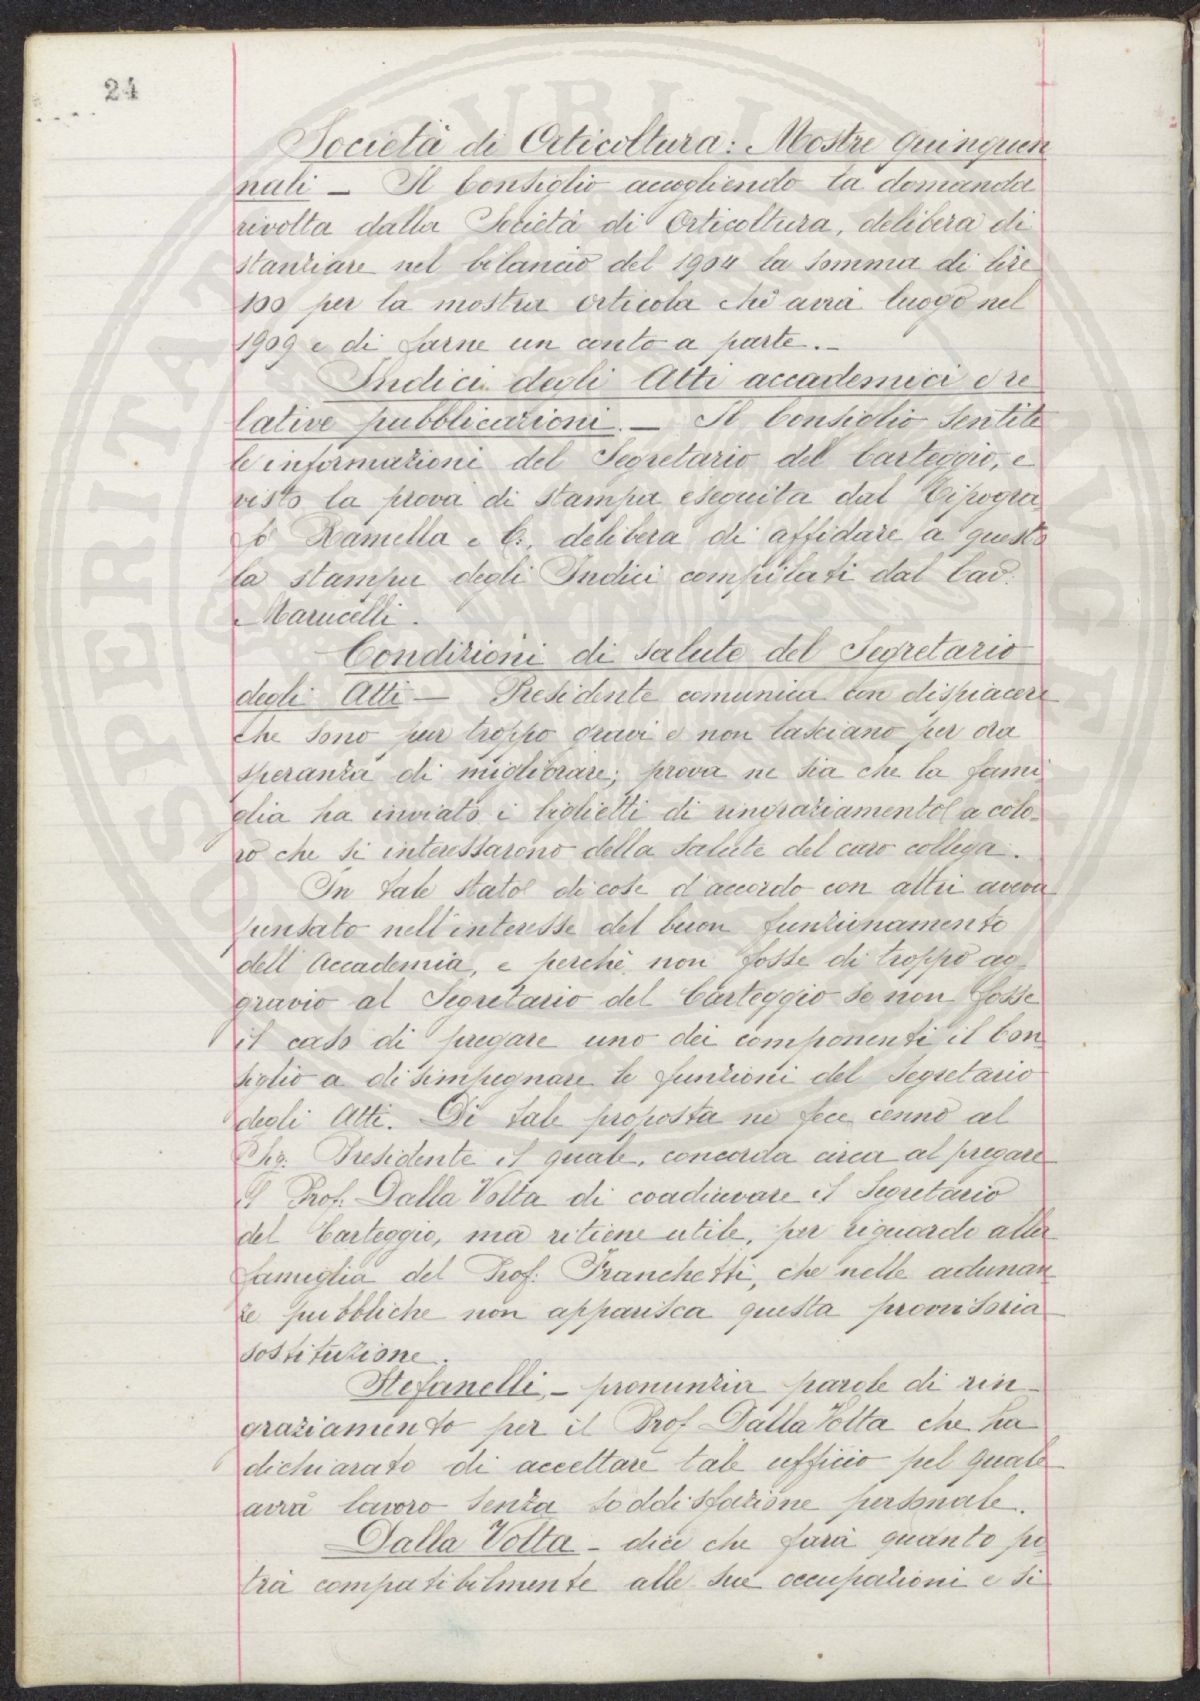 24
Società di Orticoltura: Mostre quinquen
nali — Il Consiglio accogliendo la domanda
rivolta dalla Società di Orticoltura, delibera di
stanziare nel bilancio del 1904 la somma di lire
100 per la mostra orticola che avrà luogo nel
1909 e di farne un conto a parte. —
Indici degli Atti accademici e re
lative pubblicazioni. — Il Consiglio sentite
le informazioni del Segretario del Carteggio, e
visto la prova di stampa eseguita dal Tipogra
fo Ramella e C., delibera di affidare a questo
la stampa degli Indici compilati dal Cav.
Marucelli.
Condizioni di salute del Segretario
degli Atti — Presidente comunica con dispiacere
che sono pur troppo gravi e non lasciano per ora
speranza di migliorare; prova ne sia che la fami
glia ha inviato i biglietti di ringraziamento a colo-
ro che si interessarono della salute del caro collega.
In tale stato di cose d'accordo con altri aveva
pensato nell'interesse del buon funzionamento
dell'Accademia, e perchè non fosse di troppo ag-
gravio al Segretario del Carteggio se non fosse
il caso di pregare uno dei componenti il Con
siglio a disimpegnare le funzioni del Segretario
degli Atti. Di tale proposta ne fece cenno al
Presidente il quale, concorda circa al pregare
il Prof. Dalla Volta di coadiuvare il Segretario
del Carteggio, ma ritiene utile, per riguardo alla
famiglia del Prof: Franchetti, che nelle adunan
ze pubbliche non apparisca questa provvisoria
sostituzione.
Stefanelli, — pronunzia parole di rin-
graziamento per il Prof. Dalla Volta che ha
dichiarato di accettare tale ufficio pel quale
avrà lavoro senza soddisfazione personale.
Dalla Volta — dice che farà quanto po
trà compatibilmente alle sue occupazioni e si